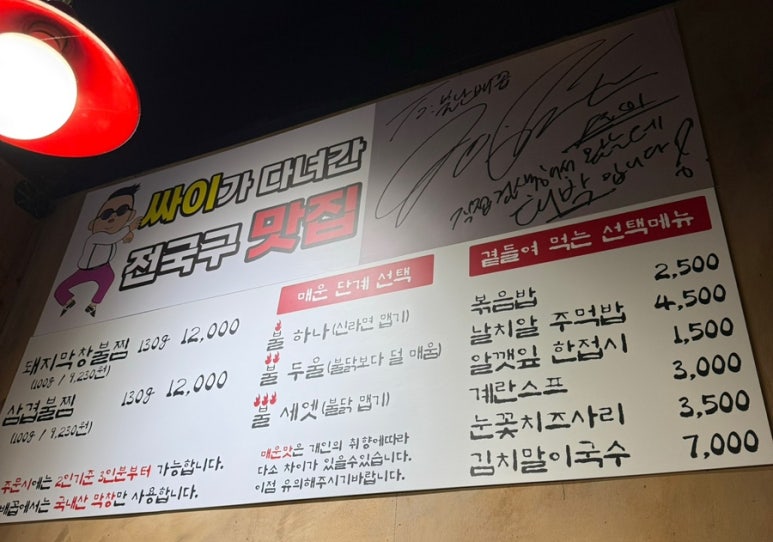 싸이가 다녀간
전국구 맛집
To. 불난배꼽
직접 검색해서 왔는데
대박입니다!
돼지막창불찜 130g 12,000
(100g / 9,230원)
삼겹불찜 130g 12,000
(100g / 9,230원)
주문시에는 2인기준 3인분부터 가능합니다.
배꼽에서는 국내산 막창만 사용합니다.
매운 단계 선택
불 하나 (신라면 맵기)
불 두울 (불닭보다 덜 매움)
불 세엣 (불닭 맵기)
매운맛은 개인의 취향에따라
다소 차이가 있을수있습니다.
이점 유의해주시기바랍니다.
곁들여 먹는 선택메뉴
볶음밥 2,500
날치알 주먹밥 4,500
알깻잎 한접시 1,500
계란스프 3,000
눈꽃치즈사리 3,500
김치말이국수 7,000